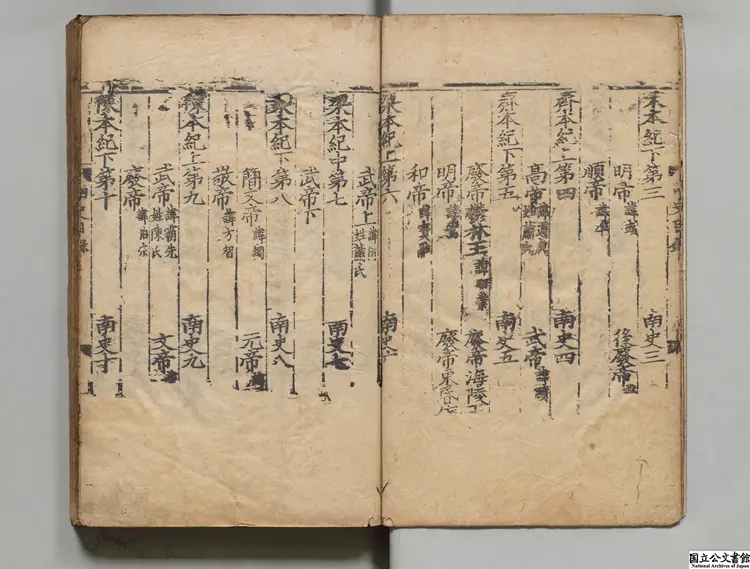 宋本紀下第三 南史三
明帝 諱彧 後廢帝
順帝 諱準
齊本紀上第四 南史四
高帝 諱道成 姓蕭氏 武帝 諱賾
齊本紀下第五 南史五
廢帝鬱林王 諱昭業 廢帝海陵王
明帝 諱鸞 廢帝東昏侯
和帝 諱寶融
梁本紀上第六 南史六
武帝上 諱衍 姓蕭氏
梁本紀中第七 南史七
武帝下
梁本紀下第八 南史八
簡文帝 諱綱 元帝
敬帝 諱方智
陳本紀上第九 南史九
武帝 諱霸先 姓陳氏 文帝
廢帝 諱伯宗
陳本紀下第十 南史十
南史目錄
国立公文書館
National Archives of Japan